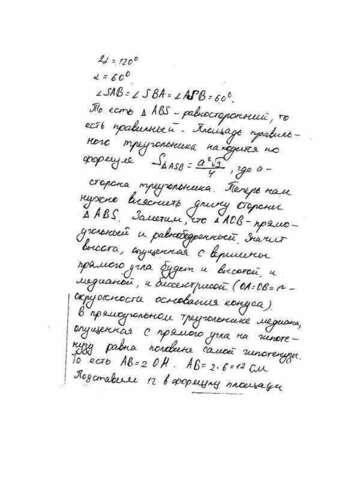 2α = 120°
α = 60°
∠SAB = ∠SBA = ∠ASB = 60°.
То есть △ABS - равносторонний, то
есть правильный. Площадь правиль-
ного треугольника находится по
формуле S△ASB = a²√3/4, где a -
сторона треугольника. Теперь нам
нужно выяснить длину стороны
△ABS. Заметим, что △AOB - прямо-
угольный и равнобедренный. Значит
высота, опущенная с вершины
прямого угла будет и высотой, и
медианой, и биссектрисой (OA=OB=r-
окружности основания конуса).
В прямоугольном треугольнике медиана,
опущенная с прямого угла на гипоте-
нузу равна половине самой гипотенузы.
То есть AB = 2OH. AB = 2·6 = 12 см
Подставим 12 в формулу площади